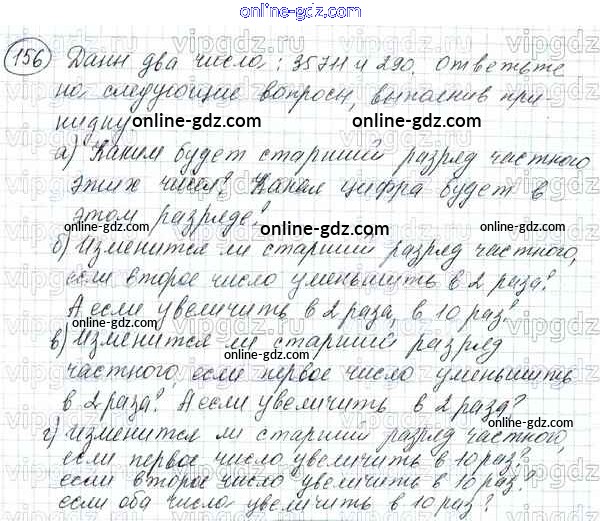 online-gdz.com
156 Даны два числа: 35711 и 290. Ответьте
на следующие вопросы, выполнив при-
кидку.
online-gdz.com online-gdz.com
а) Каким будет старший разряд частного
этих чисел? Какая цифра будет в
этом разряде?
online-gdz.com
б) Изменится ли старший разряд частного,
если второе число уменьшить в 2 раза?
online-gdz.com
А если увеличить в 2 раза, в 10 раз?
online-gdz.com online-gdz.com
в) Изменится ли старший разряд
online-gdz.com
частного, если первое число уменьшить
в 2 раза? А если увеличить в 2 раза?
online-gdz.com online-gdz.com
г) Изменится ли старший разряд частного,
если первое число увеличить в 10 раз?
если второе число увеличить в 10 раз?
online-gdz.com online-gdz.com
если оба числа увеличить в 10 раз?